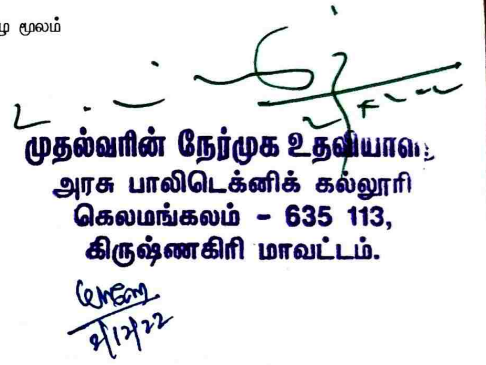 மூலம்
முதல்வரின் நேர்முக உதவியாளர்
அரசு பாலிடெக்னிக் கல்லூரி
கெலமங்கலம் - 635 113,
கிருஷ்ணகிரி மாவட்டம்.
2/12/22